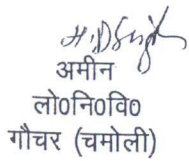 अमीन
लो०नि०वि०
गौचर (चमोली)